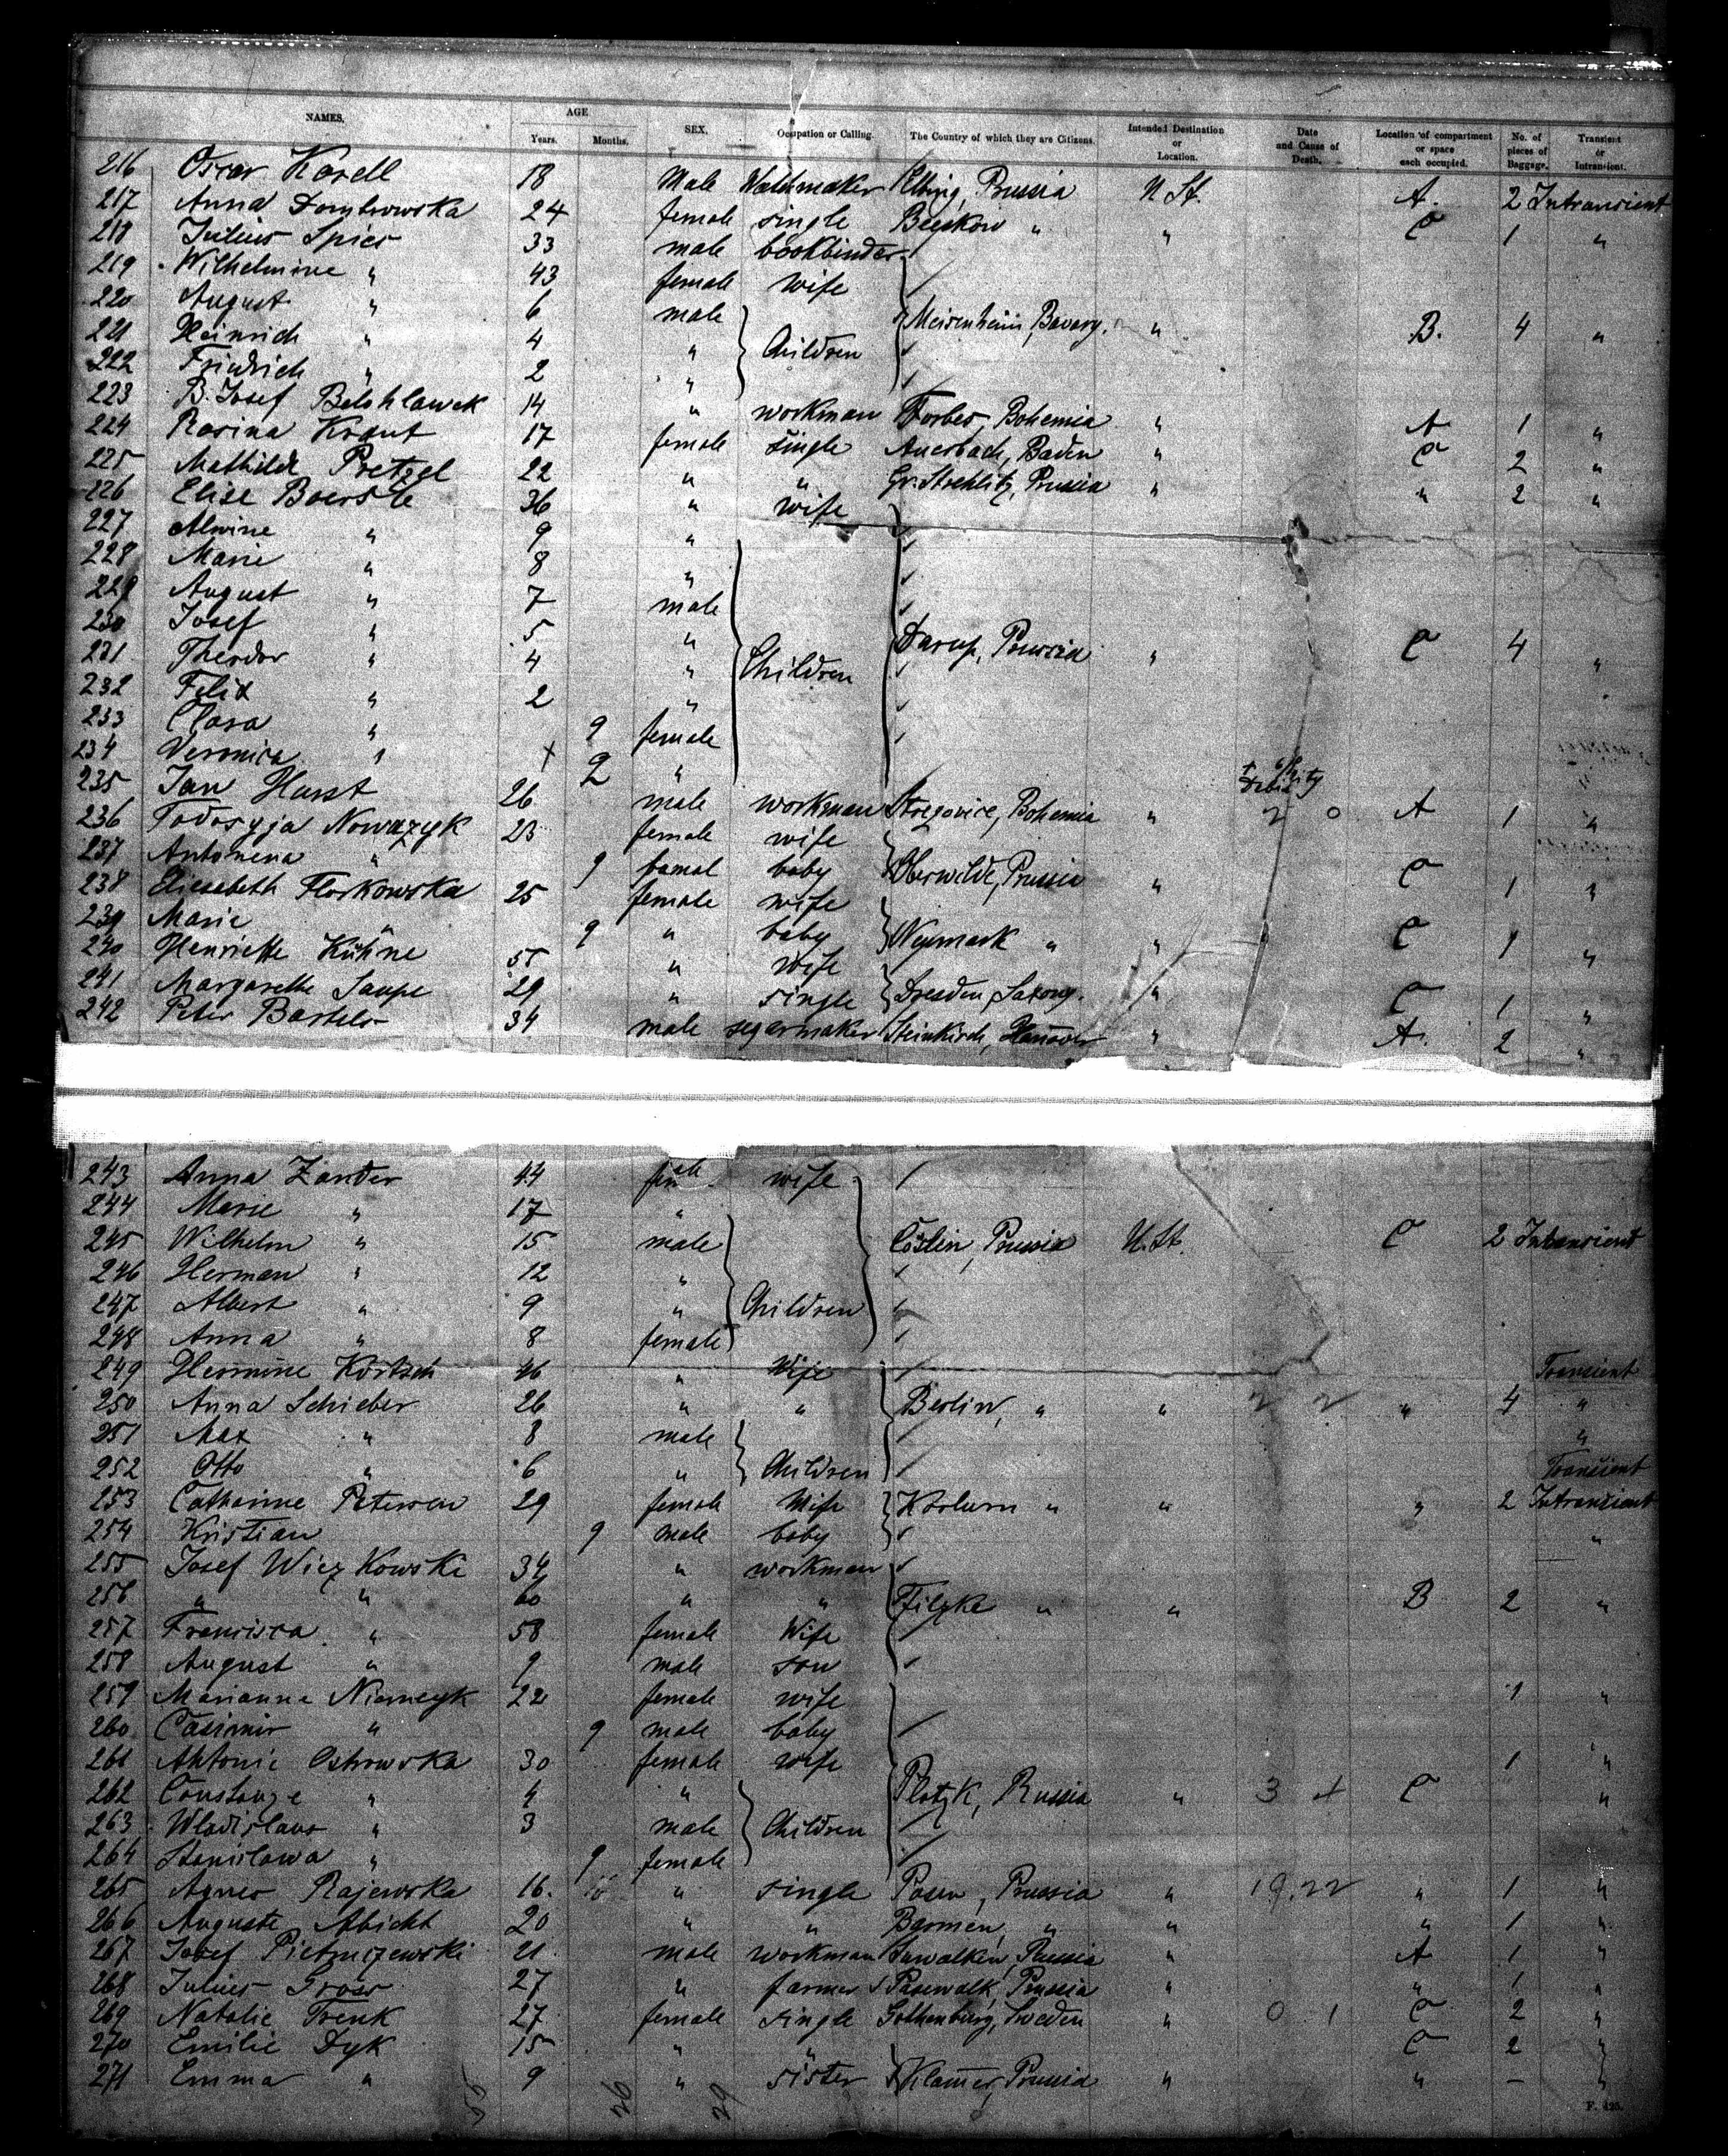 NAMES. AGE SEX. Occupation or Calling. The Country of which they are Citizens. Intended Destination or Location. Date and Cause of Death. Location of compartment or space each occupied. No. of pieces of Baggage. Transient or Intransient.
Years. Months.
216 Oscar Karell 18 Male Watchmaker Elbing, Prussia U. St. A. 2 Intransient
217 Anna Dombrowska 24 female single Beeskow " " C 1 "
218 Julius Spies 33 male bookbinder
219 Wilhelmine " 43 female wife
220 August " 6 male Meisenheim, Bavary. " B. 4 "
221 Heinrich " 4 " Children
222 Friedrich " 2 "
223 B. Josef Belohlawek 14 " workman Forbes, Bohemia " A 1 "
224 Rosina Kraut 17 female single Auerbach, Baden " C 2 "
225 Mathilde Pretzel 22 " " Gr. Strehlitz, Prussia " " 2 "
226 Elise Boerste 36 " wife
227 Alwine " 9 "
228 Marie " 8 "
229 August " 7 male
230 Josef " 5 " Darup, Prussia " C 4 "
231 Theodor " 4 " Children
232 Felix " 2 "
233 Clara " 9 female
234 Veronica " + 2 " Debility
235 Jan Hurst 26 male workman Stregovice, Bohemia " 2 0 A 1 "
236 Todosyja Nowazyk 23 female wife
237 Antonena " 9 female baby Oberwilde, Prussia " C 1 "
238 Eliesabeth Florkowska 25 female wife
239 Marie " 9 " baby Neymark " " C 1 "
240 Henriette Kühne 55 " wife
241 Margarethe Saupe 29 " single Dresden, Saxony. " C 1 "
242 Peter Bartels 34 male segarmaker Steinkirch, Hanover " A. 2 "
243 Anna Zander 44 female wife
244 Marie " 17 "
245 Wilhelm " 15 male Cöslin, Prussia U. St. C 2 Intransient
246 Herman " 12 "
247 Albert " 9 " Children
248 Anna " 8 female
249 Hermine Körtsch 46 " Wife Transient
250 Anna Schieber 26 " " Berlin, " " 2 2 " 4 "
251 Max " 8 male "
252 Otto " 6 " Children Transient
253 Catharine Petersen 29 female Wife " " " 2 Intransient
254 Kristian 9 male baby "
255 Josef Wiczkowski 34 " workman
256 " " 60 " " Filzke " " B 2 "
257 Francisca " 58 female Wife
258 August " 9 male son
259 Marianne Niemcyk 22 female wife 1 "
260 Casimir " 9 male baby
261 Antonie Ostrowska 30 female wife 1 "
262 Constanze " 4 " Plotzk, Russia " 3 4 C "
263 Wladislaus " 3 male Children
264 Stanislawa " 9 female
265 Agnes Rajewska 16. " single Posen, Prussia " 19.22 " 1 "
266 Auguste Abicht 20 " " Barmen, " " " 1 "
267 Josef Pietruszewski 21 male workman Suwalken, Russia " A 1 "
268 Julius Gross 27 " farmer Pasewalk, Prussia " " 1 "
269 Natalie Trenk 27 female single Gothenburg, Sweden " 0 1 C 2 "
270 Emilie Dyk 15 " " C 2 "
271 Emma " 9 " sister Prussia " " – "